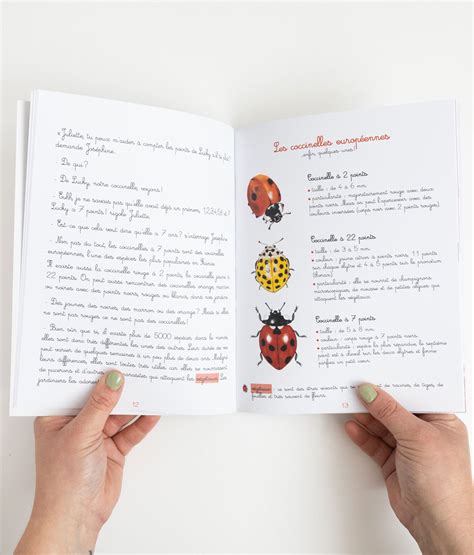 « Juliette, tu peux m'aider à compter les points de Lucky s'il te plaît
demande Joséphine.
- De qui ?
- De Lucky notre coccinelle voyons !
- Euhh je ne savais pas qu'elle avait déjà un prénom. 1,2,3,4,5,6 et 7
Lucky a 7 points ! rigole Juliette.
- Est-ce que cela veut dire qu'elle a 7 ans ? s'interroge Joséphine
- Non pas du tout, les coccinelles à 7 points sont des coccinelles
européennes, l'une des espèces les plus populaires en France.
Il existe aussi la coccinelle rouge à 2 points, la coccinelle jaune à
22 points. On peut aussi rencontrer des coccinelles orange
ou noires avec des points noirs, rouges ou blancs dans nos
jardins.
- Des jaunes, des noires, des marron ou des orange ? Mais si elles
ne sont pas rouges ce ne sont pas des coccinelles !
- Bien sûr que si, il existe plus de 5000 espèces dans le monde
elles sont donc très différentes les unes des autres. Leur durée de vie
peut varier de quelques semaines à un peu plus de deux ans. Malgré
leurs différences, elles sont toutes très utiles car elles se nourrissent
très souvent de
qui attaquent les végétaux. Les
jardiniers les adorent
12
Les coccinelles européennes
enfin, quelques-unes !
Coccinelle à 2 points
• taille : de 4 à 6 mm
• particularité : majoritairement rouge avec deux
points noirs. Mais on peut l'apercevoir avec des
couleurs inversées (corps noir avec 2 points rouges).
Coccinelle à 22 points
• taille : de 3 à 5 mm
• couleur : jaune citron à points noirs, 11 points
sur chaque élytre et 4 à 5 points noirs sur le
thorax)
• particularité : elle se nourrit de champignons
microscopiques, de mousse et de petites algues
qui attaquent les végétaux.
Coccinelle à 7 points
• taille : de 5 à 8 mm
• couleur : rouge à points noirs
• particularité : la plus répandue, le septième
point est à cheval sur les deux élytres et forme
un petit cœur.
végétaux : ce sont des êtres vivants qui se
de racines, de tiges, de
feuilles et très souvent de fleurs.
13